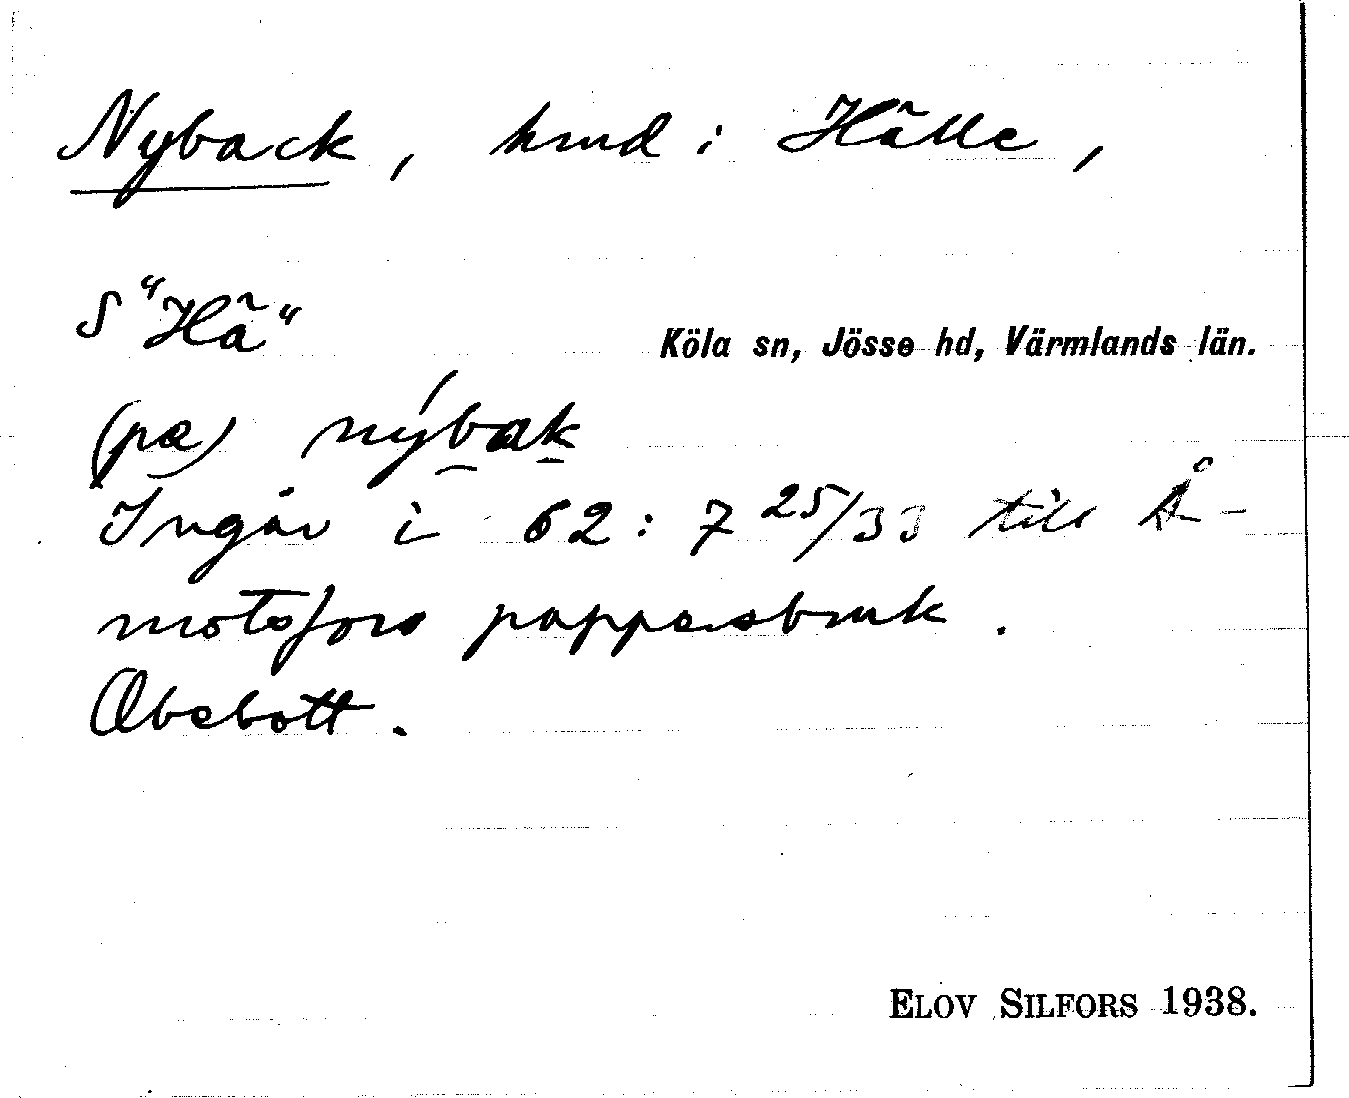 Nyback, hmd i Hälle,
S "Hä"
Köla sn, Jösse hd, Värmlands län.
(pa) nýbak
Ingår i 62:7 25/33 till Å-
motsfors pappersbruk.
Obebott.
ELOV SILFORS 1938.